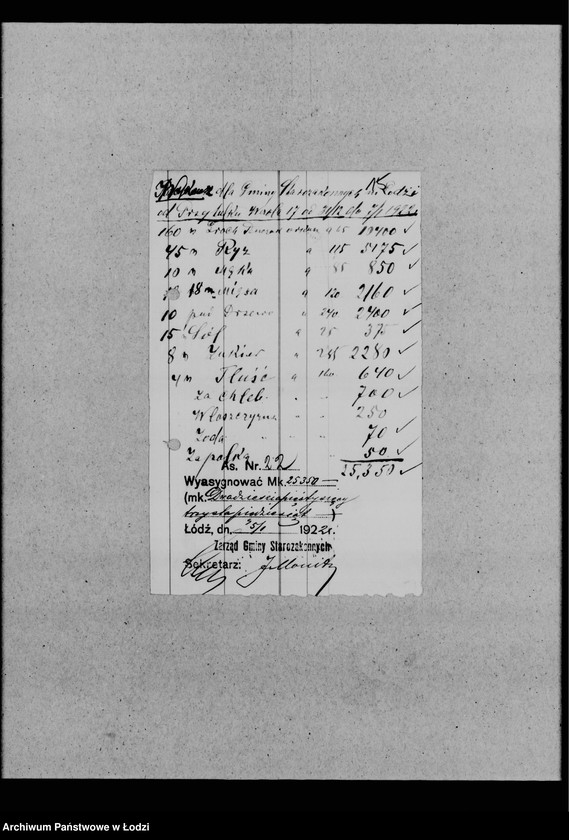 dla Gminy Starozakonnych w Łodzi
od Przytułku 17 od 1922 r.
160 Groch 10400
45 m Ryż " 115 5175
10 m Mąka " 85 850
18 m Mięsa " 120 2160
10 pud Drzewo " 240 2400
15 Sól " 25 375
8 m Cukier " 285 2280
4 m Tłuść " 160 640
Za chleb " " 700
Włoszczyzna " " 250
Zoda " " 70
Zapałka 50
As. Nr. 22 25,350
Wyasygnować Mk. 25350 —
(mk. Dwadzieścia pięć tysięcy
trzysta pięćdziesiąt —)
Łódź, dn. 5/1 1922 r.
Zarząd Gminy Starozakonnych
Sekretarz:
Archiwum Państwowe w Łodzi